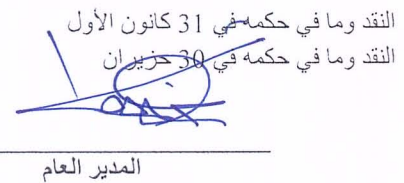 النقد وما في حكمه في 31 كانون الأول
النقد وما في حكمه في 30 حزيران
المدير العام